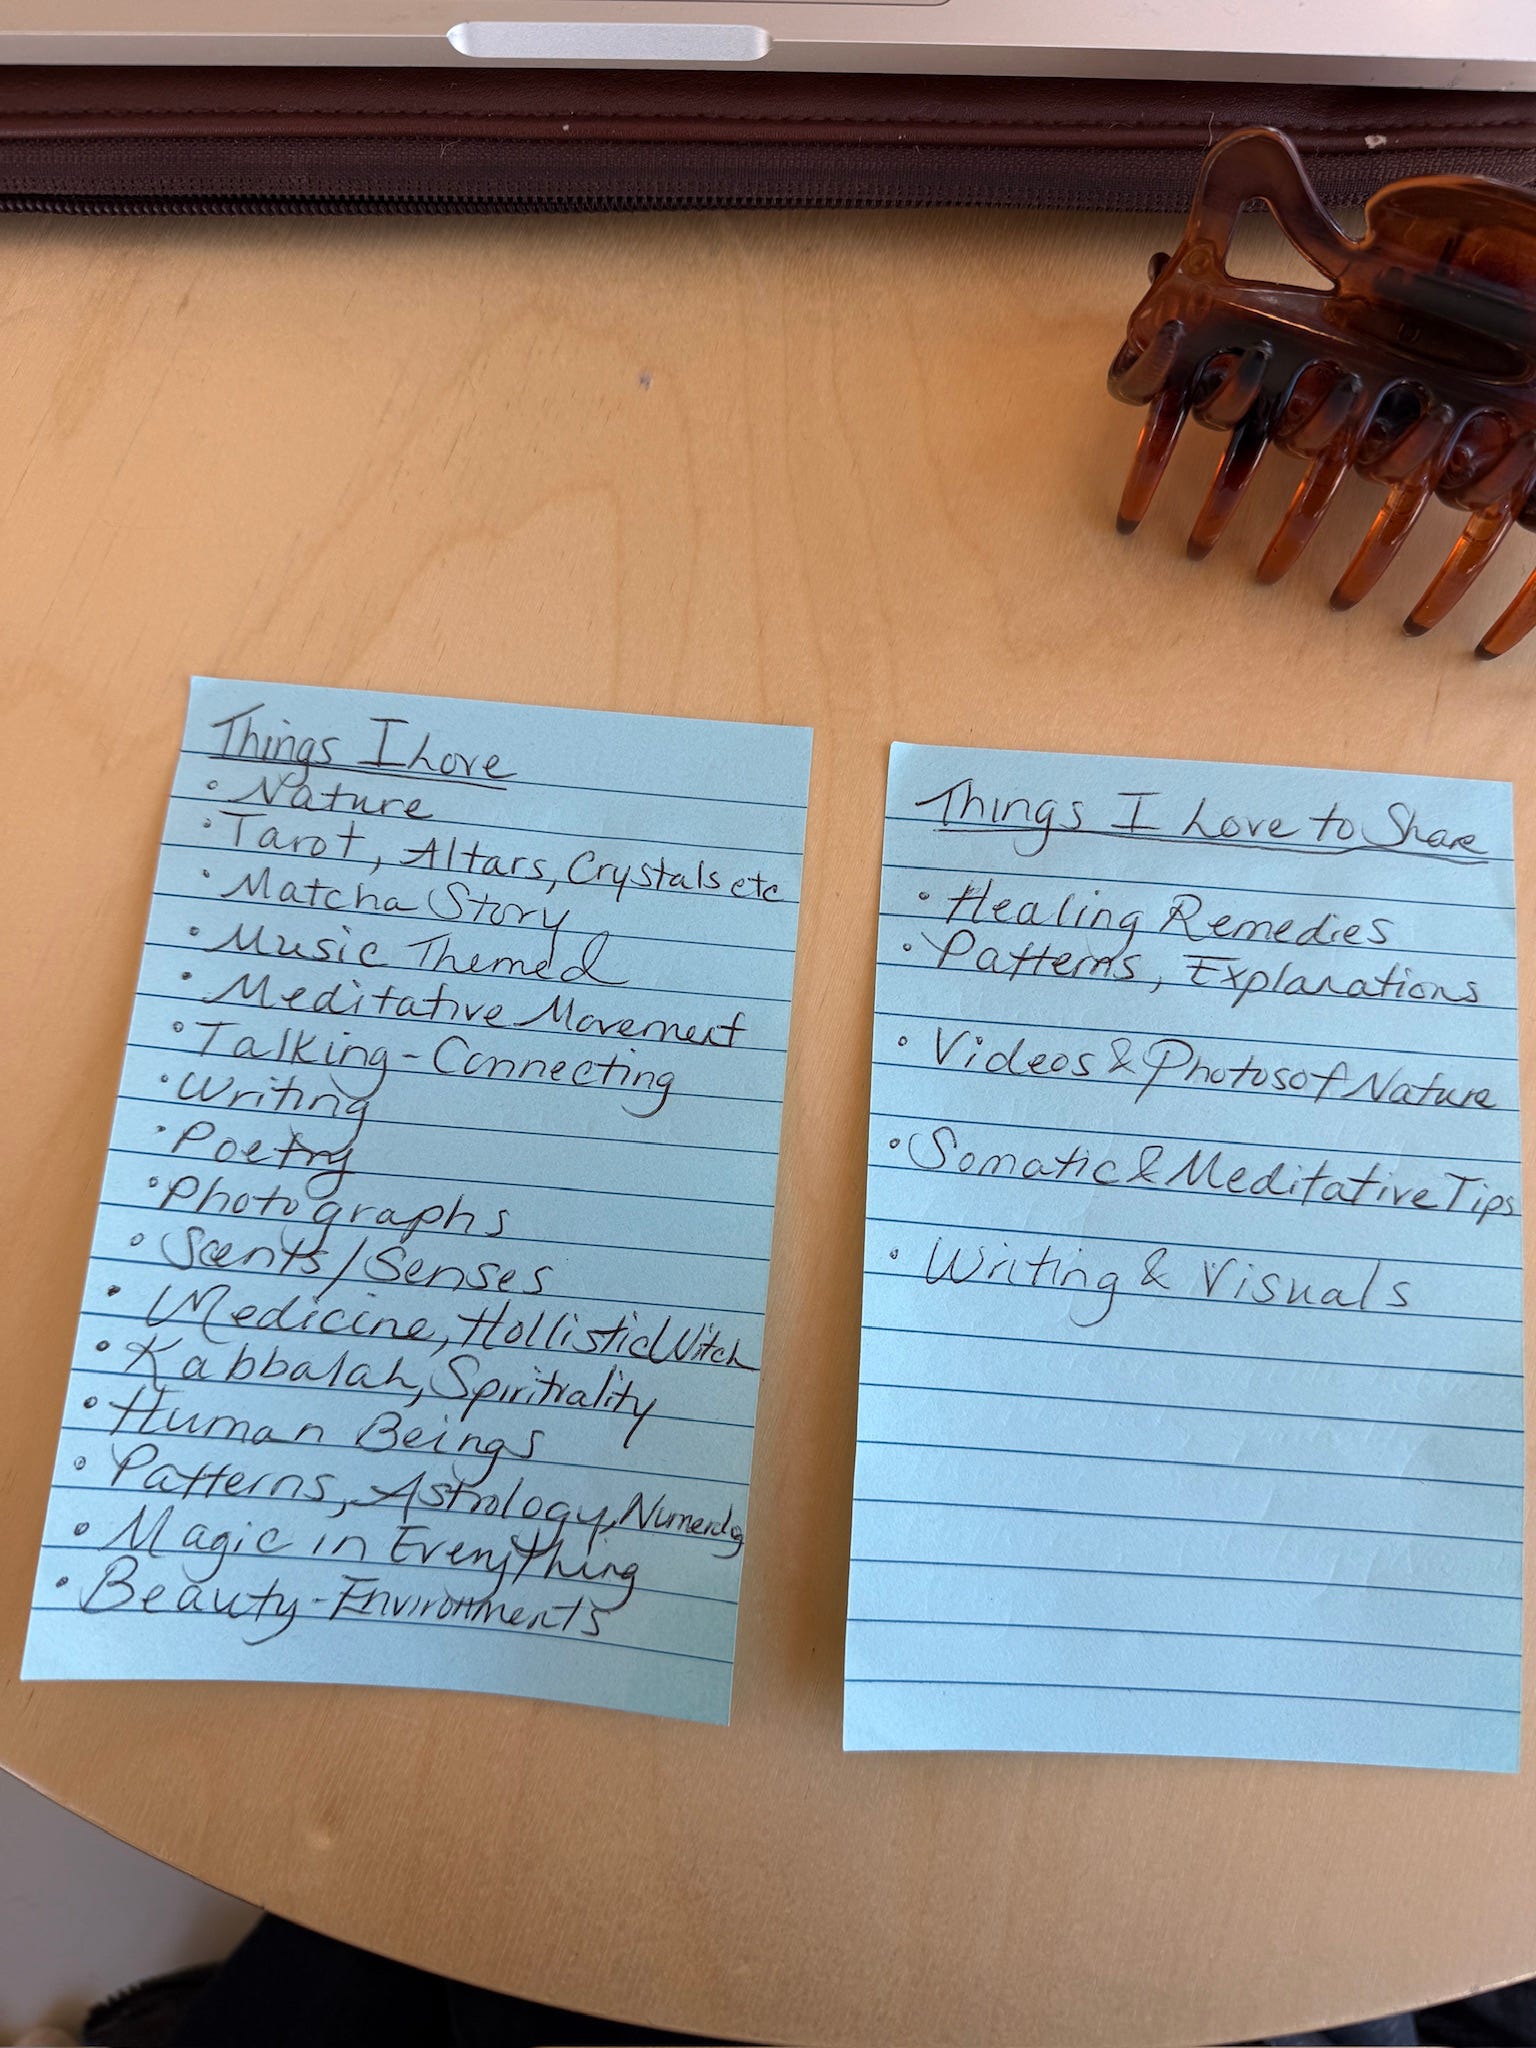 Things I Love
• Nature
• Tarot, Altars, Crystals etc
• Matcha Story
• Music Themed
• Meditative Movement
• Talking - Connecting
• Writing
• Poetry
• Photographs
• Scents/Senses
• Medicine, Hollistic Witch
• Kabbalah, Spiritiality
• Human Beings
• Patterns, Astrology,
• Magic in Everything
• Beauty - Environments
Things I Love to Share
• Healing Remedies
• Patterns, Explanations
• Videos & Photos of Nature
• Somatic & Meditative Tips
• Writing & Visuals